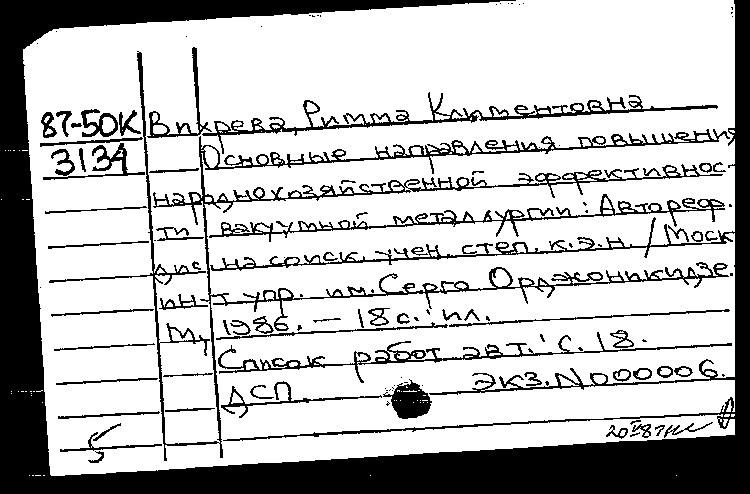 87-50К Вихрева, Римма Климентовна.
3134 Основные направления повышения
народнохозяйственной эффективнос-
ти вакуумной металлургии: Автореф.
дис. на соиск. учен. степ. к.э.н. / Моск
ин-т упр. им. Серго Орджоникидзе.
М., 1986. — 18 с.: ил.
Список работ авт.: с. 18.
ДСП. Экз. N000006.
5